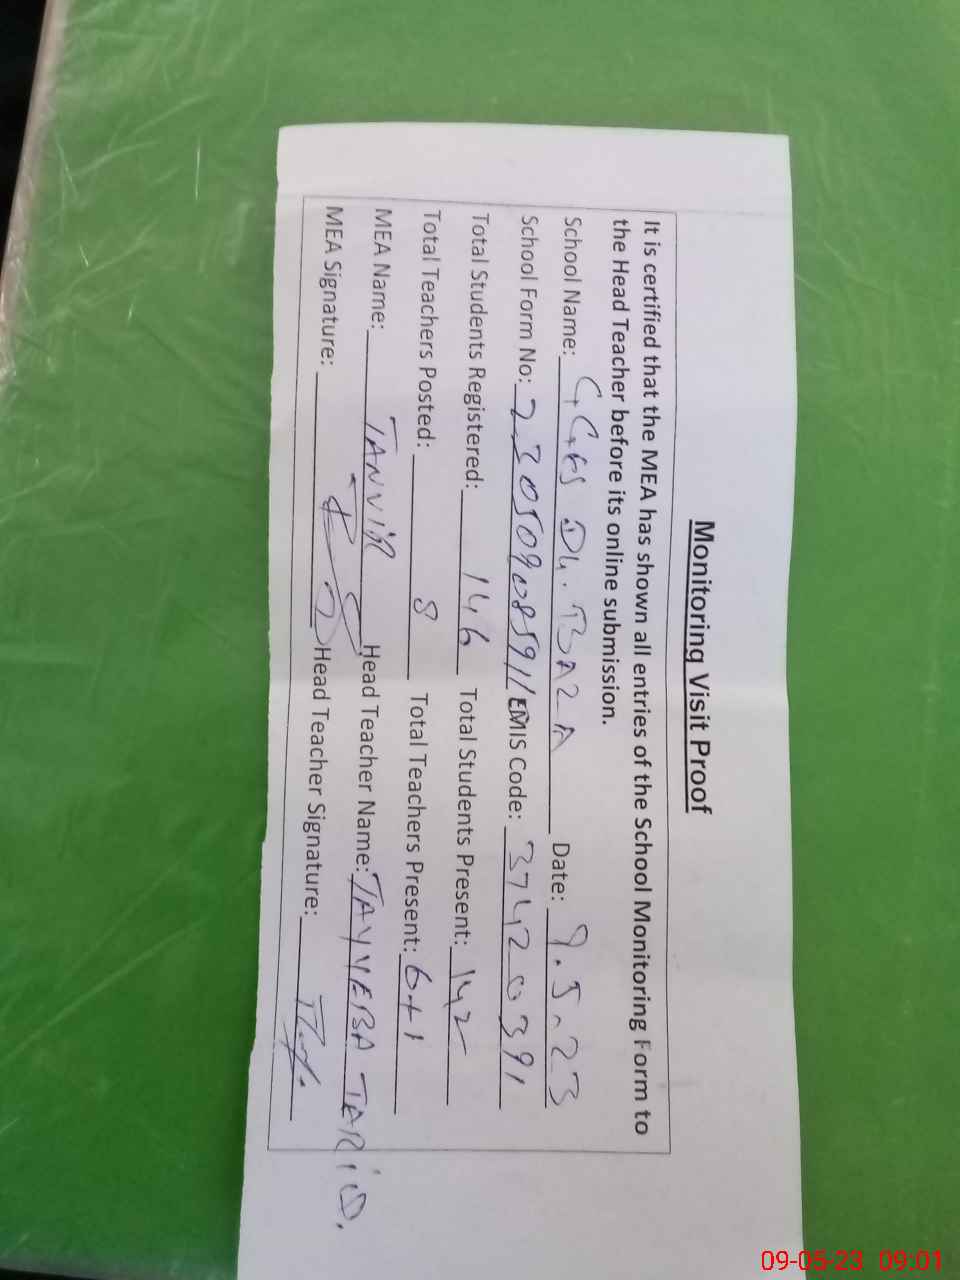 Monitoring Visit Proof
It is certified that the MEA has shown all entries of the School Monitoring Form to
the Head Teacher before its online submission.
School Name: GGHS DK. BAZA Date: 9.5.23
School Form No: 230509085911 EMIS Code: 37420391
Total Students Registered: 146 Total Students Present: 142
Total Teachers Posted: 8 Total Teachers Present: 6+1
MEA Name: TANVIR Head Teacher Name: TAYYEBA TARIQ.
MEA Signature: Head Teacher Signature:
09-05-23 09:01